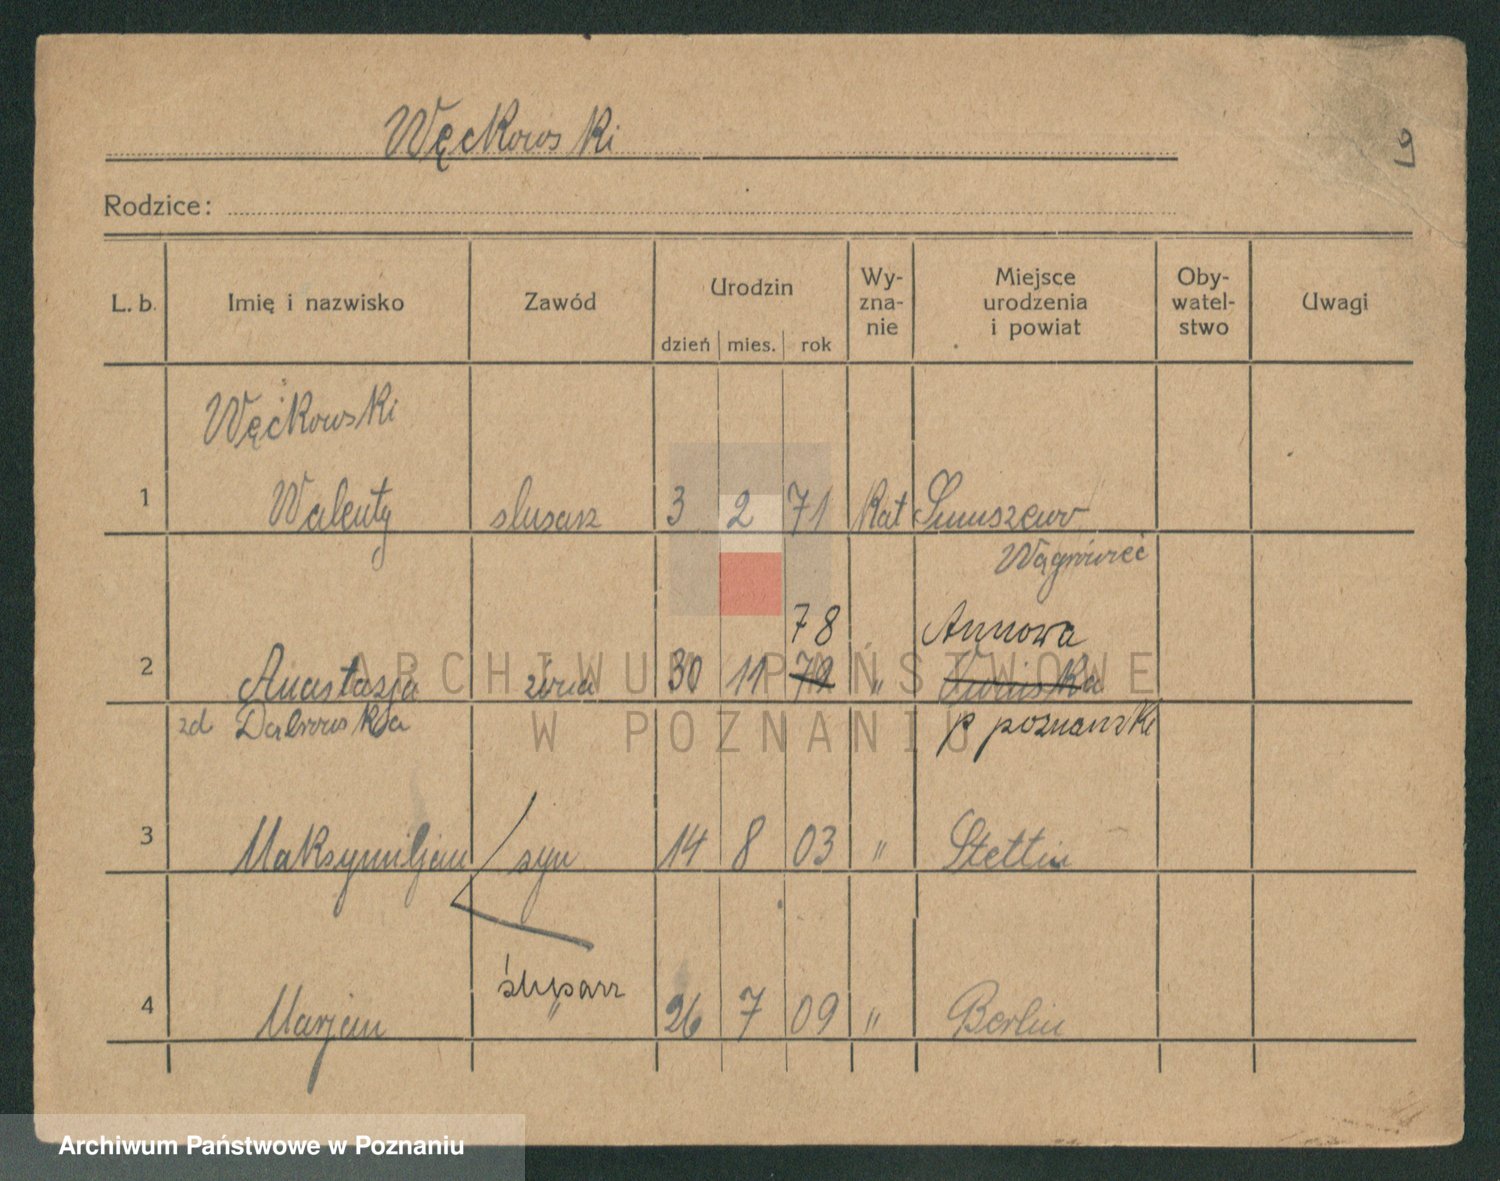 Węckowski
9
Rodzice:
L. b. Imię i nazwisko Zawód Urodzin dzień mies. rok Wy-zna-nie Miejsce urodzenia i powiat Oby-watel-stwo Uwagi
Węckowski
1 Walenty slusarz 3 2 71 Kat
Wągrówieć
78 Annowa
2 Anastazja żona 30 11 79 "
zd Dabrowska p poznański
3 Maksymiljan syn 14 8 03 " Stettin
ślusarz
4 Marjan " 26 7 09 " Berlin
ARCHIWUM PAŃSTWOWE
W POZNANIU
Archiwum Państwowe w Poznaniu